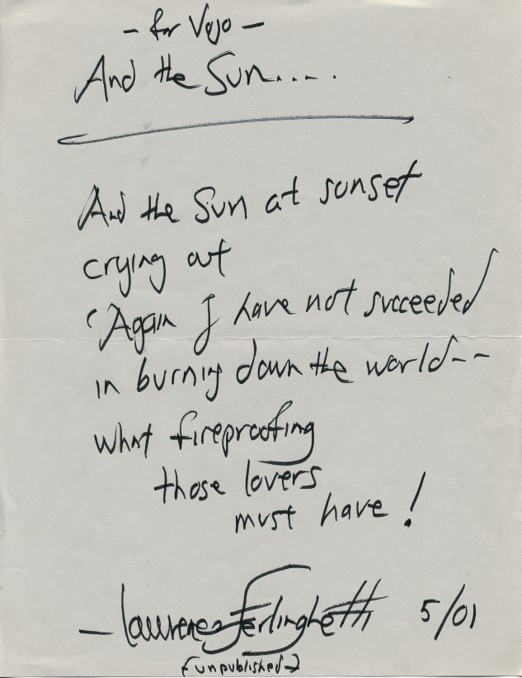 - for Vojo -
And the Sun....
And the Sun at sunset
crying out
'Again I have not succeeded
in burning down the world--
what fireproofing
those lovers
must have!
- Lawrence Ferlinghetti 5/01
(unpublished)